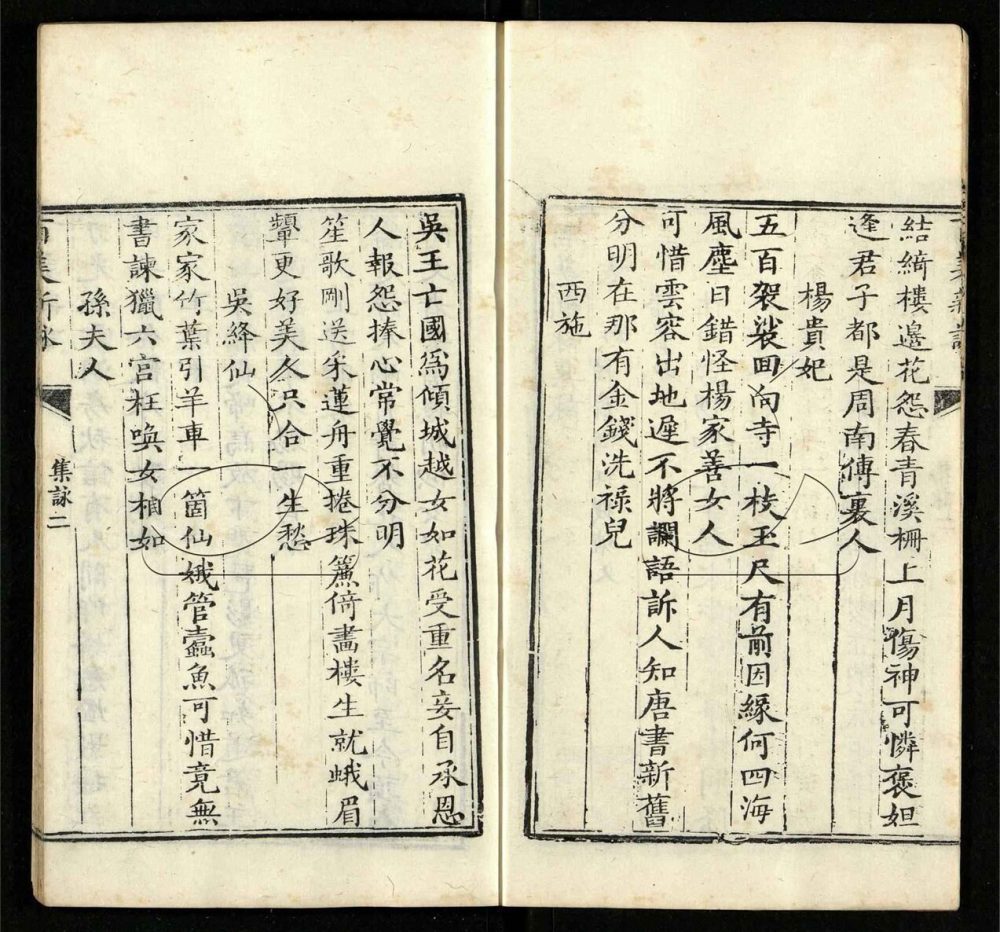 結綺樓邊花怨春青溪柵上月傷神可憐褒妲
逢君子都是周南傳裏人
楊貴妃
五百袈裟回向寺一枝玉尺有前因緣何四海
風塵日錯怪楊家善女人
可惜雲容出地遲不將讕語訴人知唐書新舊
分明在那有金錢洗祿兒
西施
吳王亡國爲傾城越女如花受重名妾自承恩
人報怨捧心常覺不分明
笙歌剛送采蓮舟重捲珠簾倚畫樓生就蛾眉
顰更好美人只合一生愁
吳絳仙
家家竹葉引羊車一箇仙娥管蠹魚可惜竟無
書諫獵六宮枉喚女相如
孫夫人
集詠二